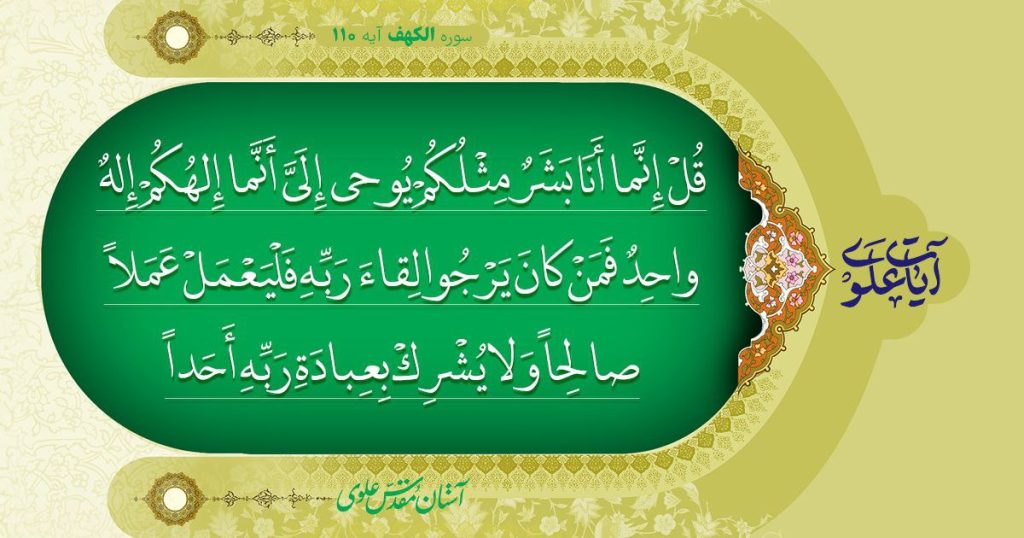 سوره الكهف آیه ۱۱۰
قُلْ إِنَّما أَنَا بَشَرٌ مِثْلُكُمْ يُوحى إِلَيَّ أَنَّما إِلهُكُمْ إِلهٌ
واحِدٌ فَمَنْ كانَ يَرْجُوا لِقاءَ رَبِّهِ فَلْيَعْمَلْ عَمَلاً
صالِحاً وَلا يُشْرِكْ بِعِبادَةِ رَبِّهِ أَحَداً
آیات علوی
آستان مقدس علوی